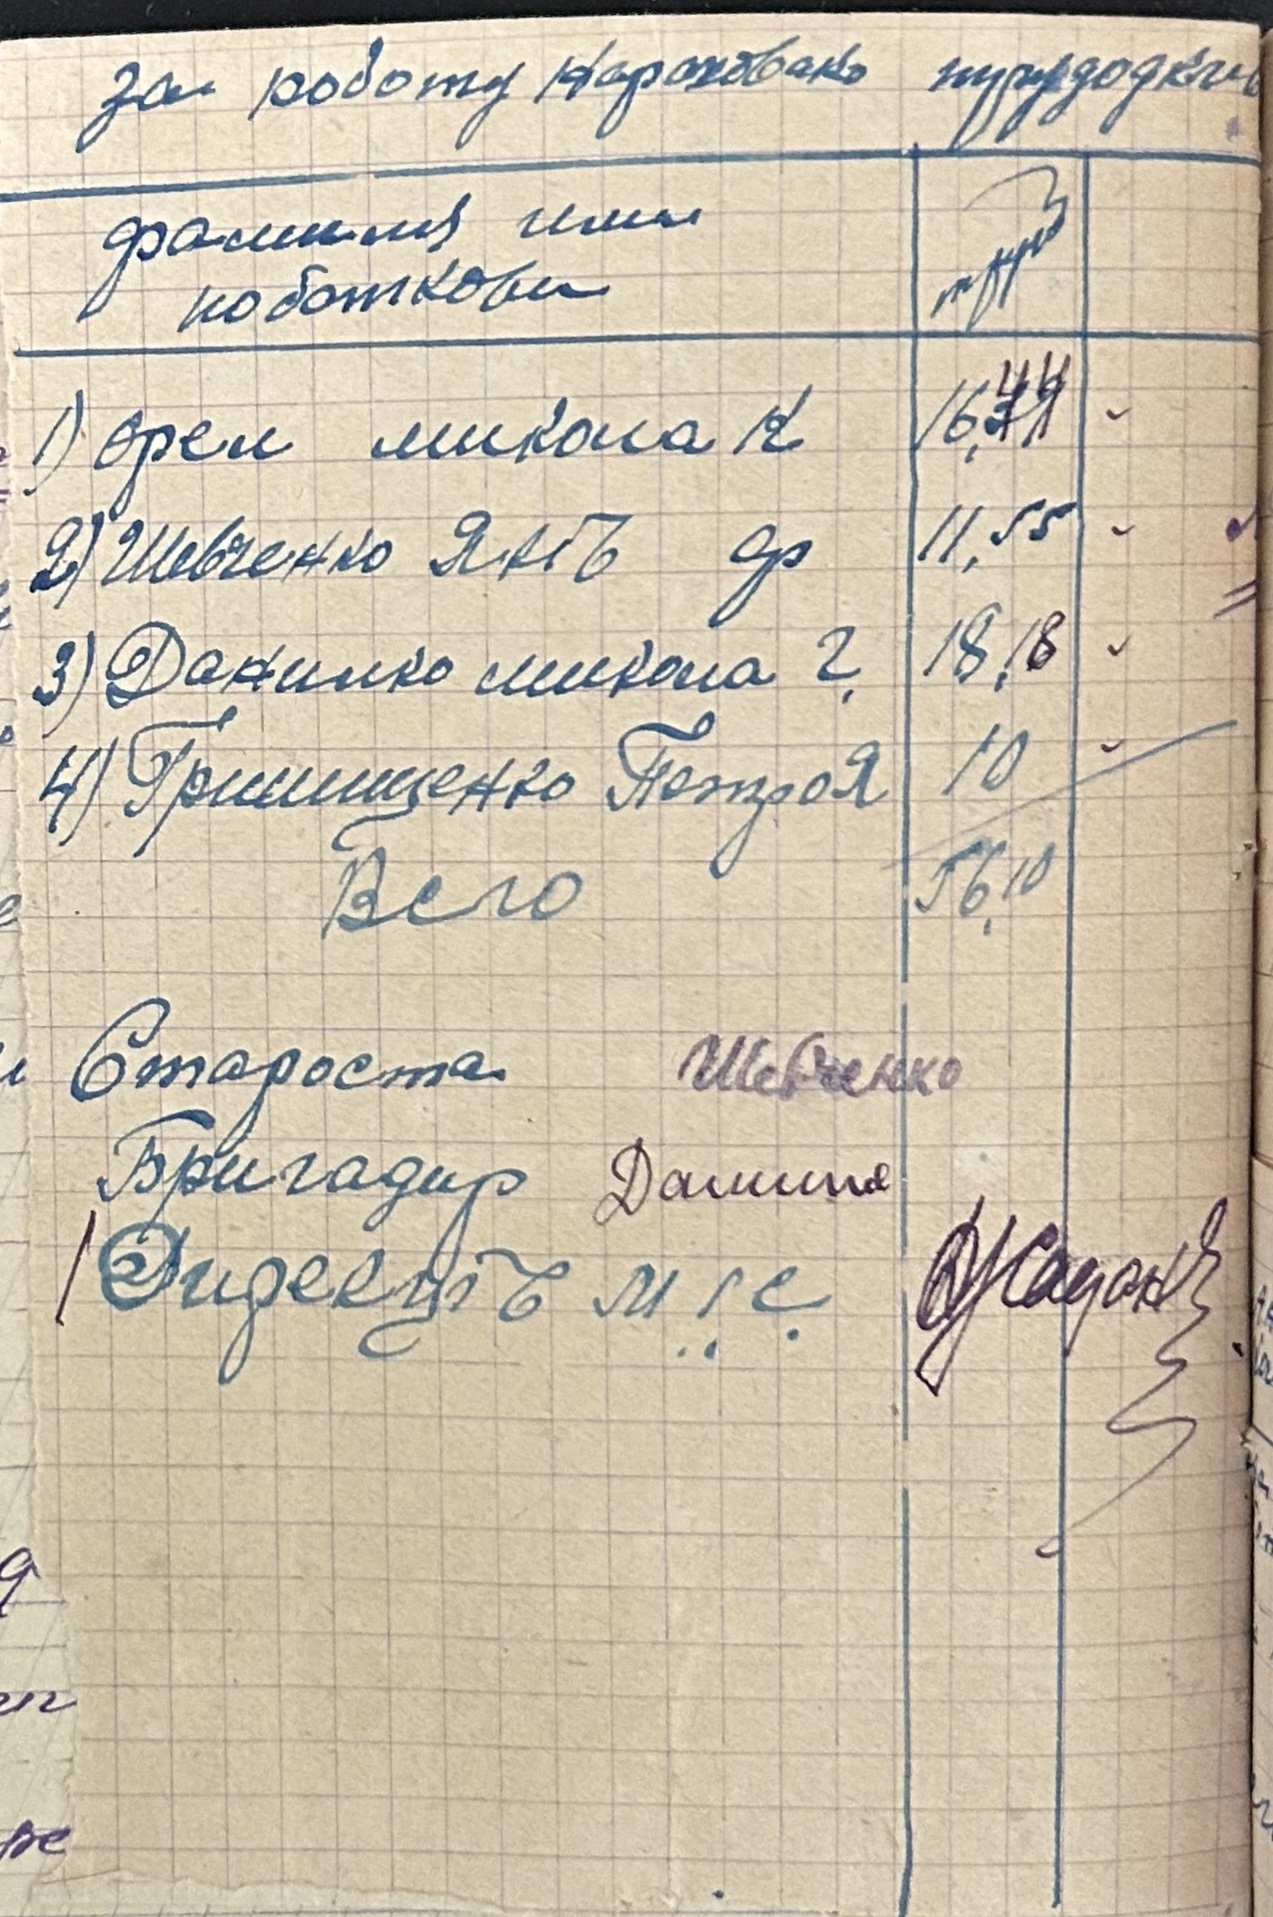 за роботу нараховано трудоднів
фамилия имя
по батькови трудо
1) Орел микола К 16,44
2) Шевченко Янъ ф 11,55
3) Данилко микола г. 18,18
4) Гришщенко Петро Я 10
Всего 56,10
Староста Шевченко
Бригадир
м.г.с.